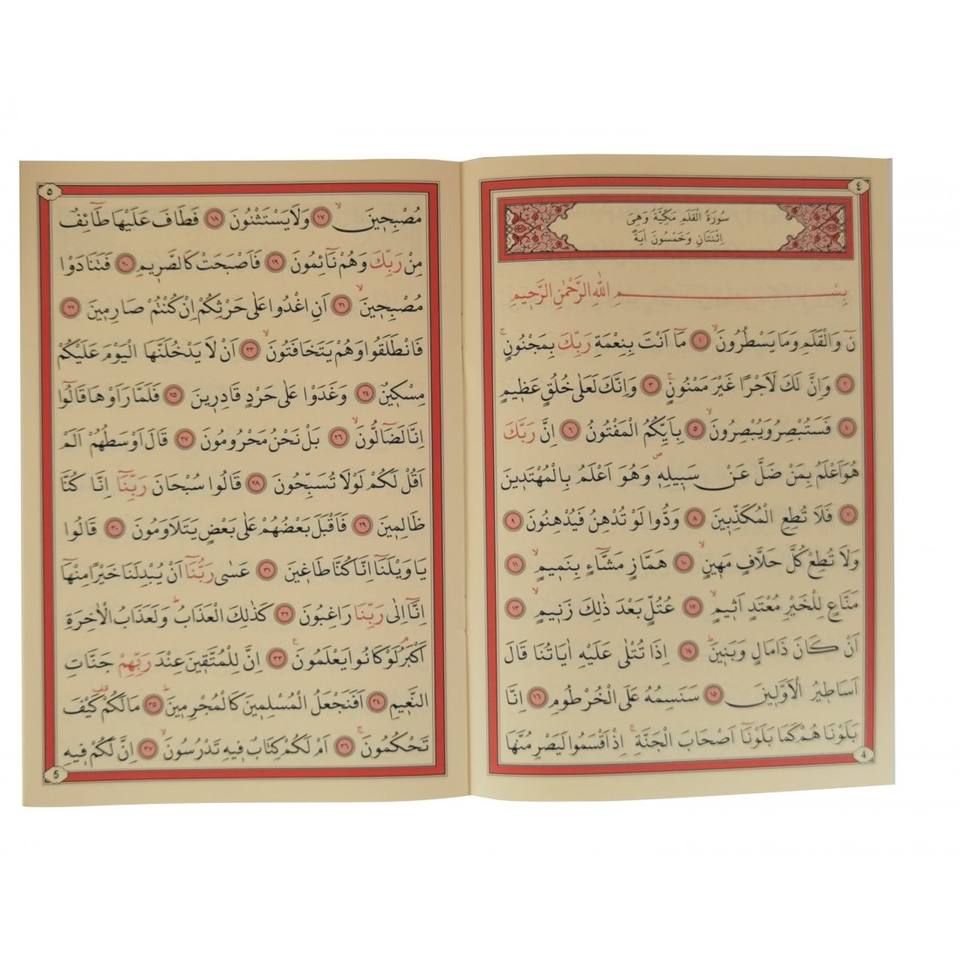 ٤
سُورَةُ الْقَلَمِ مَكِّيَّةٌ وَهِىَ
اِثْنَتَانِ وَخَمْسُونَ اٰيَةً
بِسْــــــــمِ اللهِ الرَّحْمٰنِ الرَّحٖيمِ
نٓ وَالْقَلَمِ وَمَا يَسْطُرُونَۙ ﴿١﴾ مَٓا اَنْتَ بِنِعْمَةِ رَبِّكَ بِمَجْنُونٍۚ
﴿٢﴾ وَاِنَّ لَكَ لَاَجْرًا غَيْرَ مَمْنُونٍۚ ﴿٣﴾ وَاِنَّكَ لَعَلٰى خُلُقٍ عَظٖيمٍ
﴿٤﴾ فَسَتُبْصِرُ وَيُبْصِرُونَۙ ﴿٥﴾ بِاَيِّكُمُ الْمَفْتُونُ ﴿٦﴾ اِنَّ رَبَّكَ
هُوَ اَعْلَمُ بِمَنْ ضَلَّ عَنْ سَبٖيلِهٖۖ وَهُوَ اَعْلَمُ بِالْمُهْتَدٖينَ
﴿٧﴾ فَلَا تُطِعِ الْمُكَذِّبٖينَ ﴿٨﴾ وَدُّوا لَوْ تُدْهِنُ فَيُدْهِنُونَ ﴿٩﴾
وَلَا تُطِعْ كُلَّ حَلَّافٍ مَهٖينٍۙ ﴿١٠﴾ هَمَّازٍ مَشَّٓاءٍ بِنَمٖيمٍۙ ﴿١١﴾
مَنَّاعٍ لِلْخَيْرِ مُعْتَدٍ اَثٖيمٍۙ ﴿١٢﴾ عُتُلٍّ بَعْدَ ذٰلِكَ زَنٖيمٍۙ ﴿١٣﴾
اَنْ كَانَ ذَا مَالٍ وَبَنٖينَؕ ﴿١٤﴾ اِذَا تُتْلٰى عَلَيْهِ اٰيَاتُنَا قَالَ
اَسَاطٖيرُ الْاَوَّلٖينَ ﴿١٥﴾ سَنَسِمُهُ عَلَى الْخُرْطُومِ ﴿١٦﴾ اِنَّا
بَلَوْنَاهُمْ كَمَا بَلَوْنَٓا اَصْحَابَ الْجَنَّةِۚ اِذْ اَقْسَمُوا لَيَصْرِمُنَّهَا
4
٥
مُصْبِحٖينَۙ ﴿١٧﴾ وَلَا يَسْتَثْنُونَ ﴿١٨﴾ فَطَافَ عَلَيْهَا طَٓائِفٌ
مِنْ رَبِّكَ وَهُمْ نَٓائِمُونَ ﴿١٩﴾ فَاَصْبَحَتْ كَالصَّرٖيمِۙ ﴿٢٠﴾ فَتَنَادَوْا
مُصْبِحٖينَۙ ﴿٢١﴾ اَنِ اغْدُوا عَلٰى حَرْثِكُمْ اِنْ كُنْتُمْ صَارِمٖينَ ﴿٢٢﴾
فَانْطَلَقُوا وَهُمْ يَتَخَافَتُونَۙ ﴿٢٣﴾ اَنْ لَا يَدْخُلَنَّهَا الْيَوْمَ عَلَيْكُمْ
مِسْكٖينٌ ﴿٢٤﴾ وَغَدَوْا عَلٰى حَرْدٍ قَادِرٖينَ ﴿٢٥﴾ فَلَمَّا رَاَوْهَا قَالُٓوا
اِنَّا لَضَٓالُّونَۙ ﴿٢٦﴾ بَلْ نَحْنُ مَحْرُومُونَ ﴿٢٧﴾ قَالَ اَوْسَطُهُمْ اَلَمْ
اَقُلْ لَكُمْ لَوْلَا تُسَبِّحُونَ ﴿٢٨﴾ قَالُوا سُبْحَانَ رَبِّنَٓا اِنَّا كُنَّا
ظَالِمٖينَ ﴿٢٩﴾ فَاَقْبَلَ بَعْضُهُمْ عَلٰى بَعْضٍ يَتَلَاوَمُونَ ﴿٣٠﴾ قَالُوا
يَا وَيْلَنَٓا اِنَّا كُنَّا طَاغٖينَ ﴿٣١﴾ عَسٰى رَبُّنَٓا اَنْ يُبْدِلَنَا خَيْرًا مِنْهَٓا
اِنَّٓا اِلٰى رَبِّنَا رَاغِبُونَ ﴿٣٢﴾ كَذٰلِكَ الْعَذَابُؕ وَلَعَذَابُ الْاٰخِرَةِ
اَكْبَرُۢ لَوْ كَانُوا يَعْلَمُونَۚ ﴿٣٣﴾ اِنَّ لِلْمُتَّقٖينَ عِنْدَ رَبِّهِمْ جَنَّاتِ
النَّعٖيمِ ﴿٣٤﴾ اَفَنَجْعَلُ الْمُسْلِمٖينَ كَالْمُجْرِمٖينَؕ ﴿٣٥﴾ مَا لَكُمْ كَيْفَ
تَحْكُمُونَۚ ﴿٣٦﴾ اَمْ لَكُمْ كِتَابٌ فٖيهِ تَدْرُسُونَۙ ﴿٣٧﴾ اِنَّ لَكُمْ فٖيهِ
5